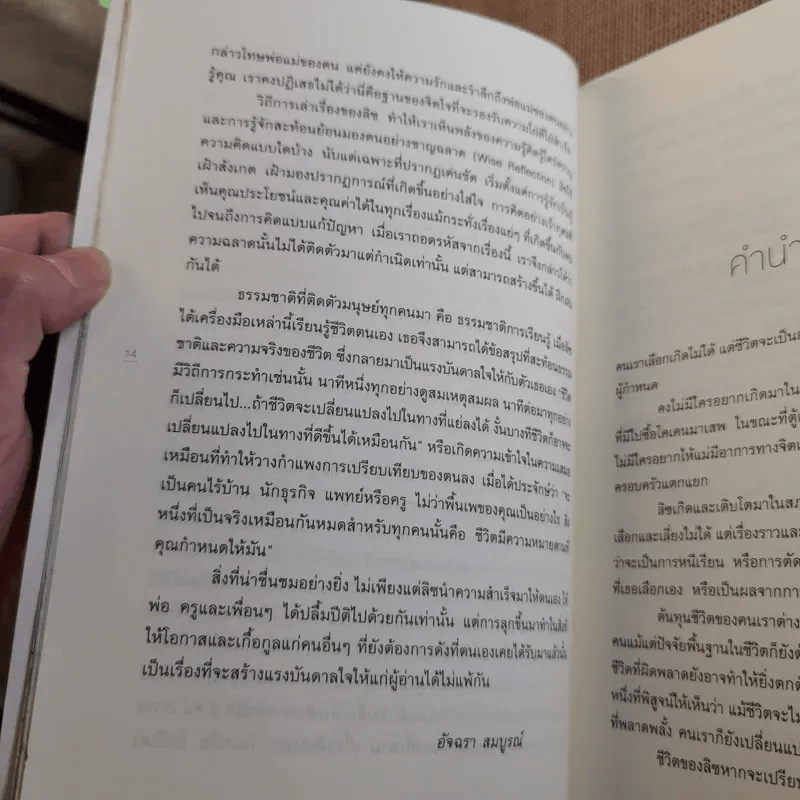 กล่าวโทษพ่อแม่ของตน แต่ยังคงให้ความรักและรำลึกถึงพ่อแม่ของตนอย่าง
รู้คุณ เราคงปฏิเสธไม่ได้ว่านี่คือฐานของจิตใจที่จะรองรับความใฝ่ดีใฝ่สำเร็จ
วิถีการเล่าเรื่องของลิซ ทำให้เราเห็นพลังของความรู้คิดรู้ใคร่ครวญ
และการรู้จักสะท้อนย้อนมองตนอย่างชาญฉลาด (Wise Reflection)
ความคิดแบบใดบ้าง นับแต่เฉพาะที่ปรากฏเด่นชัด เริ่มตั้งแต่การรู้จัก
เฝ้าสังเกต เฝ้ามองปรากฏการณ์ที่เกิดขึ้นอย่างใส่ใจ การคิดอย่าง
เห็นคุณประโยชน์และคุณค่าได้ในทุกเรื่องแม้กระทั่งเรื่องแย่ๆ ที่เกิดขึ้นกับตน
ไปจนถึงการคิดแบบแก้ปัญหา เมื่อเราถอดรหัสจากเรื่องนี้ เราจึงกล่าวได้ว่า
ความฉลาดนั้นไม่ได้ติดตัวมาแต่กำเนิดเท่านั้น แต่สามารถสร้างขึ้นได้ ฝึกฝน
กันได้
ธรรมชาติที่ติดตัวมนุษย์ทุกคนมา คือ ธรรมชาติการเรียนรู้ เมื่อลิซ
ได้เครื่องมือเหล่านี้เรียนรู้ชีวิตตนเอง เธอจึงสามารถได้ข้อสรุปที่สะท้อนธรรม
ชาติและความจริงของชีวิต ซึ่งกลายมาเป็นแรงบันดาลใจให้กับตัวเธอเอง "ชีวิต
มีวิถีการกระทำเช่นนั้น นาทีหนึ่งทุกอย่างดูสมเหตุสมผล นาทีต่อมาทุกอย่าง
ก็เปลี่ยนไป...ถ้าชีวิตจะเปลี่ยนแปลงไปในทางที่แย่ลงได้ งั้นบางทีชีวิตก็อาจจะ
เปลี่ยนแปลงไปในทางที่ดีขึ้นได้เหมือนกัน" หรือเกิดความเข้าใจในความเสมอ
เหมือนที่ทำให้วางกำแพงการเปรียบเทียบของตนลง เมื่อได้ประจักษ์ว่า "จะ
เป็นคนไร้บ้าน นักธุรกิจ แพทย์หรือครู ไม่ว่าพื้นเพของคุณเป็นอย่างไร สิ่ง
หนึ่งที่เป็นจริงเหมือนกันหมดสำหรับทุกคนนั้นคือ ชีวิตมีความหมายตามที่
คุณกำหนดให้มัน"
สิ่งที่น่าชื่นชมอย่างยิ่ง ไม่เพียงแต่ลิซนำความสำเร็จมาให้ตนเอง ให้
พ่อ ครูและเพื่อนๆ ได้ปลื้มปีติไปด้วยกันเท่านั้น แต่การลุกขึ้นมาทำในสิ่งที่
ให้โอกาสและเกื้อกูลแก่คนอื่นๆ ที่ยังต้องการดังที่ตนเองเคยได้รับมาแล้วนั้น
เป็นเรื่องที่จะสร้างแรงบันดาลใจให้แก่ผู้อ่านได้ไม่แพ้กัน
อัจฉรา สมบูรณ์
14
คำนำ
คนเราเลือกเกิดไม่ได้ แต่ชีวิตจะเป็น
ผู้กำหนด
คงไม่มีใครอยากเกิดมาใน
ที่มีไปซื้อโคเคนมาเสพ ในขณะที่ตู้
ไม่มีใครอยากให้แม่มีอาการทางจิต
ครอบครัวแตกแยก
ลิซเกิดและเติบโตมาใน
เลือกและเลี่ยงไม่ได้ แต่เรื่องราวและ
ว่าจะเป็นการหนีเรียน หรือการตัด
ที่เธอเลือกเอง หรือเป็นผลจากการ
ต้นทุนชีวิตของคนเราต่าง
คนแม้แต่ปัจจัยพื้นฐานในชีวิตก็ยัง
ชีวิตที่ผิดพลาดยังอาจทำให้ยิ่งตกต่ำ
หนึ่งที่พิสูจน์ให้เห็นว่า แม้ชีวิตจะ
ที่พลาดพลั้ง คนเราก็ยังเปลี่ยนแปล
ชีวิตของลิซหากจะเปรีย